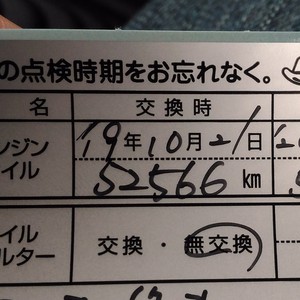 の点検時期をお忘れなく。
名 交換時
ンジン 19年10月21日
イル 52566 km
イル
ルター 交換・無交換